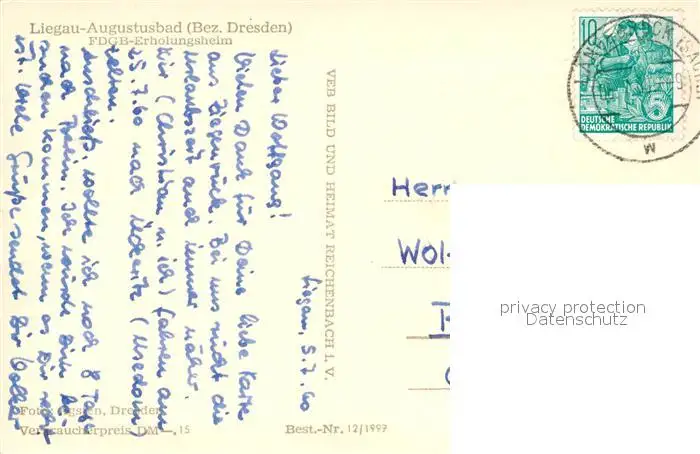 Liegau-Augustusbad (Bez. Dresden)
FDGB-Erholungsheim
Liegau, 5.7.60
Lieber Wolfgang!
Vielen Dank für Deine liebe Karte
aus Ziegenrück. Bei uns rückt die
Urlaubszeit auch immer näher.
Wir (Christian u. ich) fahren am
25.7.60 nach Ückeritz (Usedom)
zelten.
Anschließ. wollte ich noch 8 Tage
nach Berlin. Ich würde Dich
kommen, wenn es Dir recht
ist. Viele Grüße sendet Dir Volker
Foto: Agsten, Dresden
Verbraucherpreis DM —,15
Best.-Nr. 12/1997
VEB BILD UND HEIMAT REICHENBACH I. V.
10
DEUTSCHE
DEMOKRATISCHE REPUBLIK
Herr
Wol
privacy protection
Datenschutz